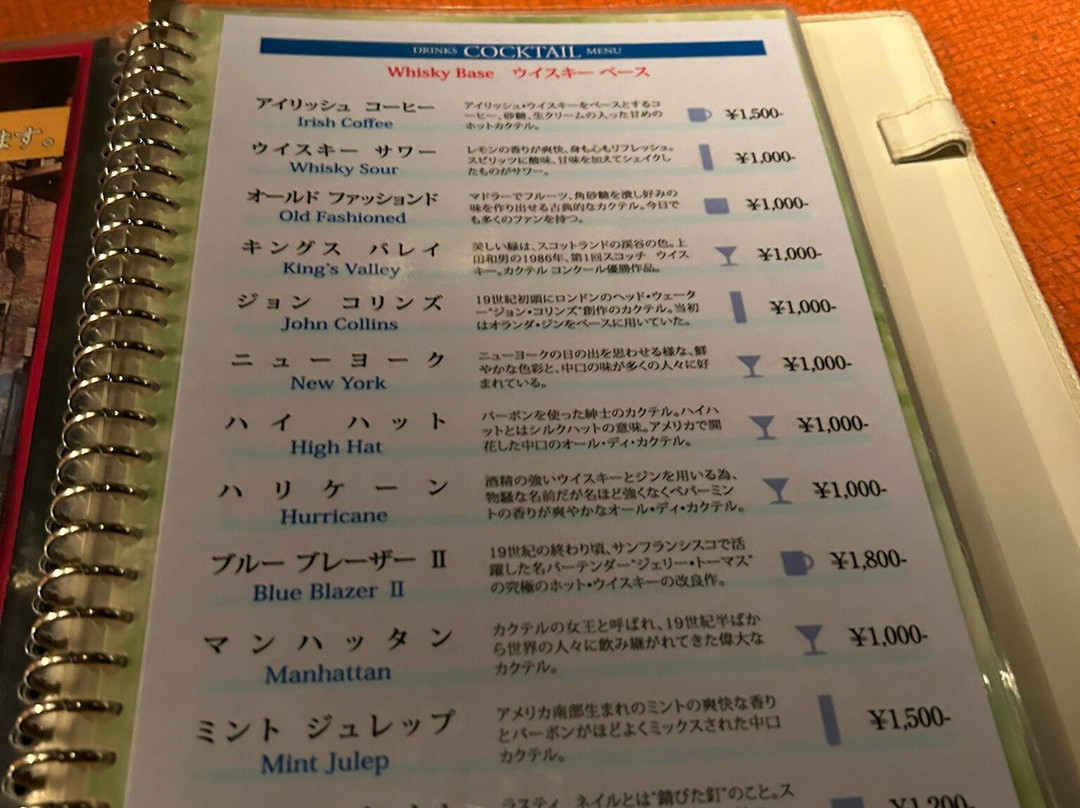 ます。
DRINKS COCKTAIL MENU
Whisky Base ウイスキー ベース
アイリッシュ コーヒー
Irish Coffee
アイリッシュ・ウイスキーをベースとするコ
ーヒー、砂糖、生クリームの入った甘めの
ホットカクテル。
¥1,500-
ウイスキー サワー
Whisky Sour
レモンの香りが爽快、身も心もリフレッシュ。
スピリッツに酸味、甘味を加えてシェイクし
たものがサワー。
¥1,000-
オールド ファッションド
Old Fashioned
マドラーでフルーツ、角砂糖を潰し好みの
味を作り出せる古典的なカクテル。今日で
も多くのファンを持つ。
¥1,000-
キングス バレイ
King's Valley
美しい緑は、スコットランドの渓谷の色。上
田和男の1986年、第1回スコッチ ウイス
キー。カクテル コンクール優勝作品。
¥1,000-
ジョン コリンズ
John Collins
19世紀初頭にロンドンのヘッド・ウェータ
ー"ジョン・コリンズ"創作のカクテル。当初
はオランダ・ジンをベースに用いていた。
¥1,000-
ニューヨーク
New York
ニューヨークの日の出を思わせる様な、鮮
やかな色彩と、中口の味が多くの人々に好
まれている。
¥1,000-
ハイ ハット
High Hat
バーボンを使った紳士のカクテル。ハイハ
ットとはシルクハットの意味。アメリカで開
花した中口のオール・ディ・カクテル。
¥1,000-
ハリケーン
Hurricane
酒精の強いウイスキーとジンを用いる為、
物騒な名前だが名ほど強くなくペパーミン
トの香りが爽やかなオール・ディ・カクテル。
¥1,000-
ブルー ブレーザー Ⅱ
Blue Blazer Ⅱ
19世紀の終わり頃、サンフランシスコで活
躍した名バーテンダー"ジェリー・トーマス"
の究極のホット・ウイスキーの改良作。
¥1,800-
マンハッタン
Manhattan
カクテルの女王と呼ばれ、19世紀半ばか
ら世界の人々に飲み継がれてきた偉大な
カクテル。
¥1,000-
ミント ジュレップ
Mint Julep
アメリカ南部生まれのミントの爽快な香り
とバーボンがほどよくミックスされた中口
カクテル。
¥1,500-
ラスティ ネイルとは"錆びた釘"のこと。ス
¥1,200-